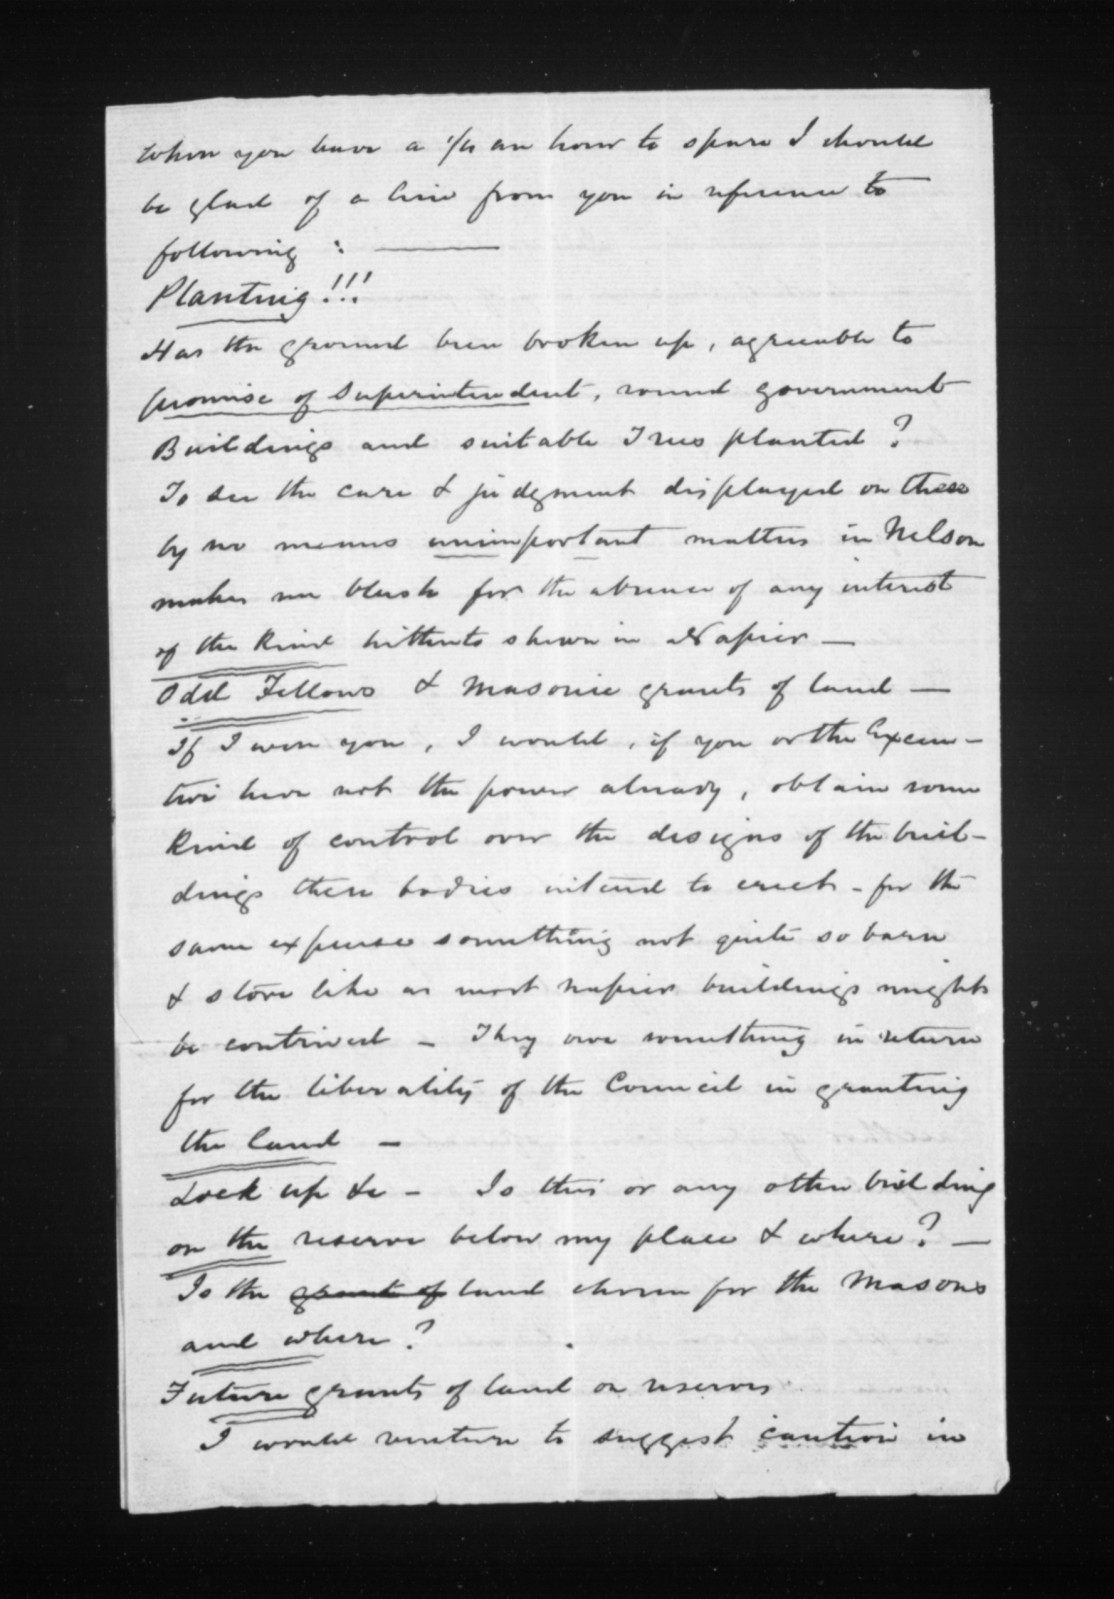 When you have a 1/4 an hour to spare I should
be glad of a line from you in reference to
following : ———
Planting!!!
Has the ground been broken up, agreeable to
promise of Superintendent, round government
Buildings and suitable Trees planted?
To see the care & judgment displayed on these
by no means unimportant matters in Nelson
makes me blush for the absence of any interest
of the kind hitherto shewn in Napier —
Odd Fellows & Masonic grants of land —
If I were you, I would, if you or the Execu-
tive have not the power already, obtain some
kind of control over the designs of the buil-
dings these bodies intend to erect - for the
same expense something not quite so barn
& store like as most Napier buildings might
be contrived — They owe something in return
for the liberality of the Council in granting
the land —
Lock up &c - Is this or any other building
on the reserve below my place & where? —
Is the grant of land chosen for the Masons
and where?
Future grants of land or reserves
I would venture to suggest caution in